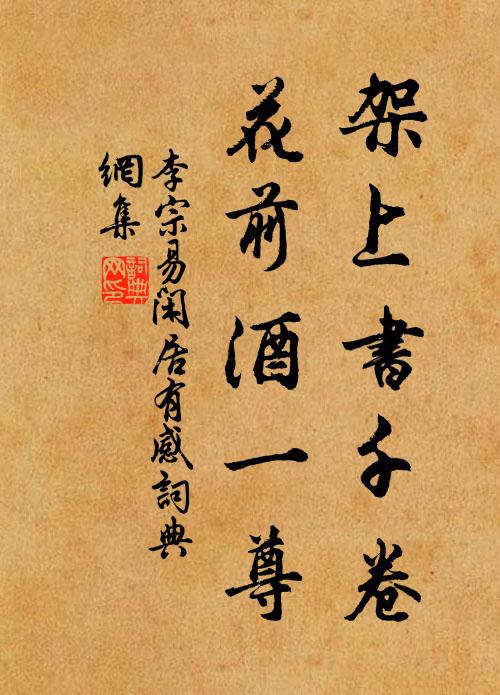 架上書千卷
花前酒一尊
李宗易閑居有感詞典
網集
詞典
网印